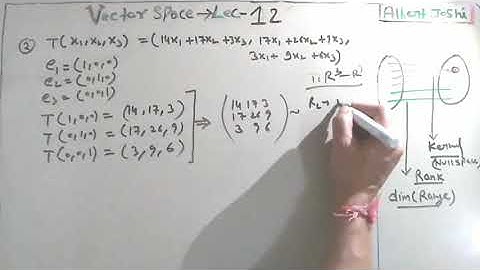 Vector Space → Lec-12
Albert Joshi
② T(x₁,x₂,x₃) = (14x₁+17x₂+3x₃, 17x₁+26x₂+9x₃,
3x₁+9x₂+6x₃)
e₁=(1,0,0)
e₂=(0,1,0)
e₃=(0,0,1)
T(1,0,0) = (14,17,3)
T(0,1,0) = (17,26,9)
T(0,0,1) = (3,9,6)
⇒
14 17 3
17 26 9
3 9 6
~
R₂→
Kernel
(Null space)
Rank
dim(Range)